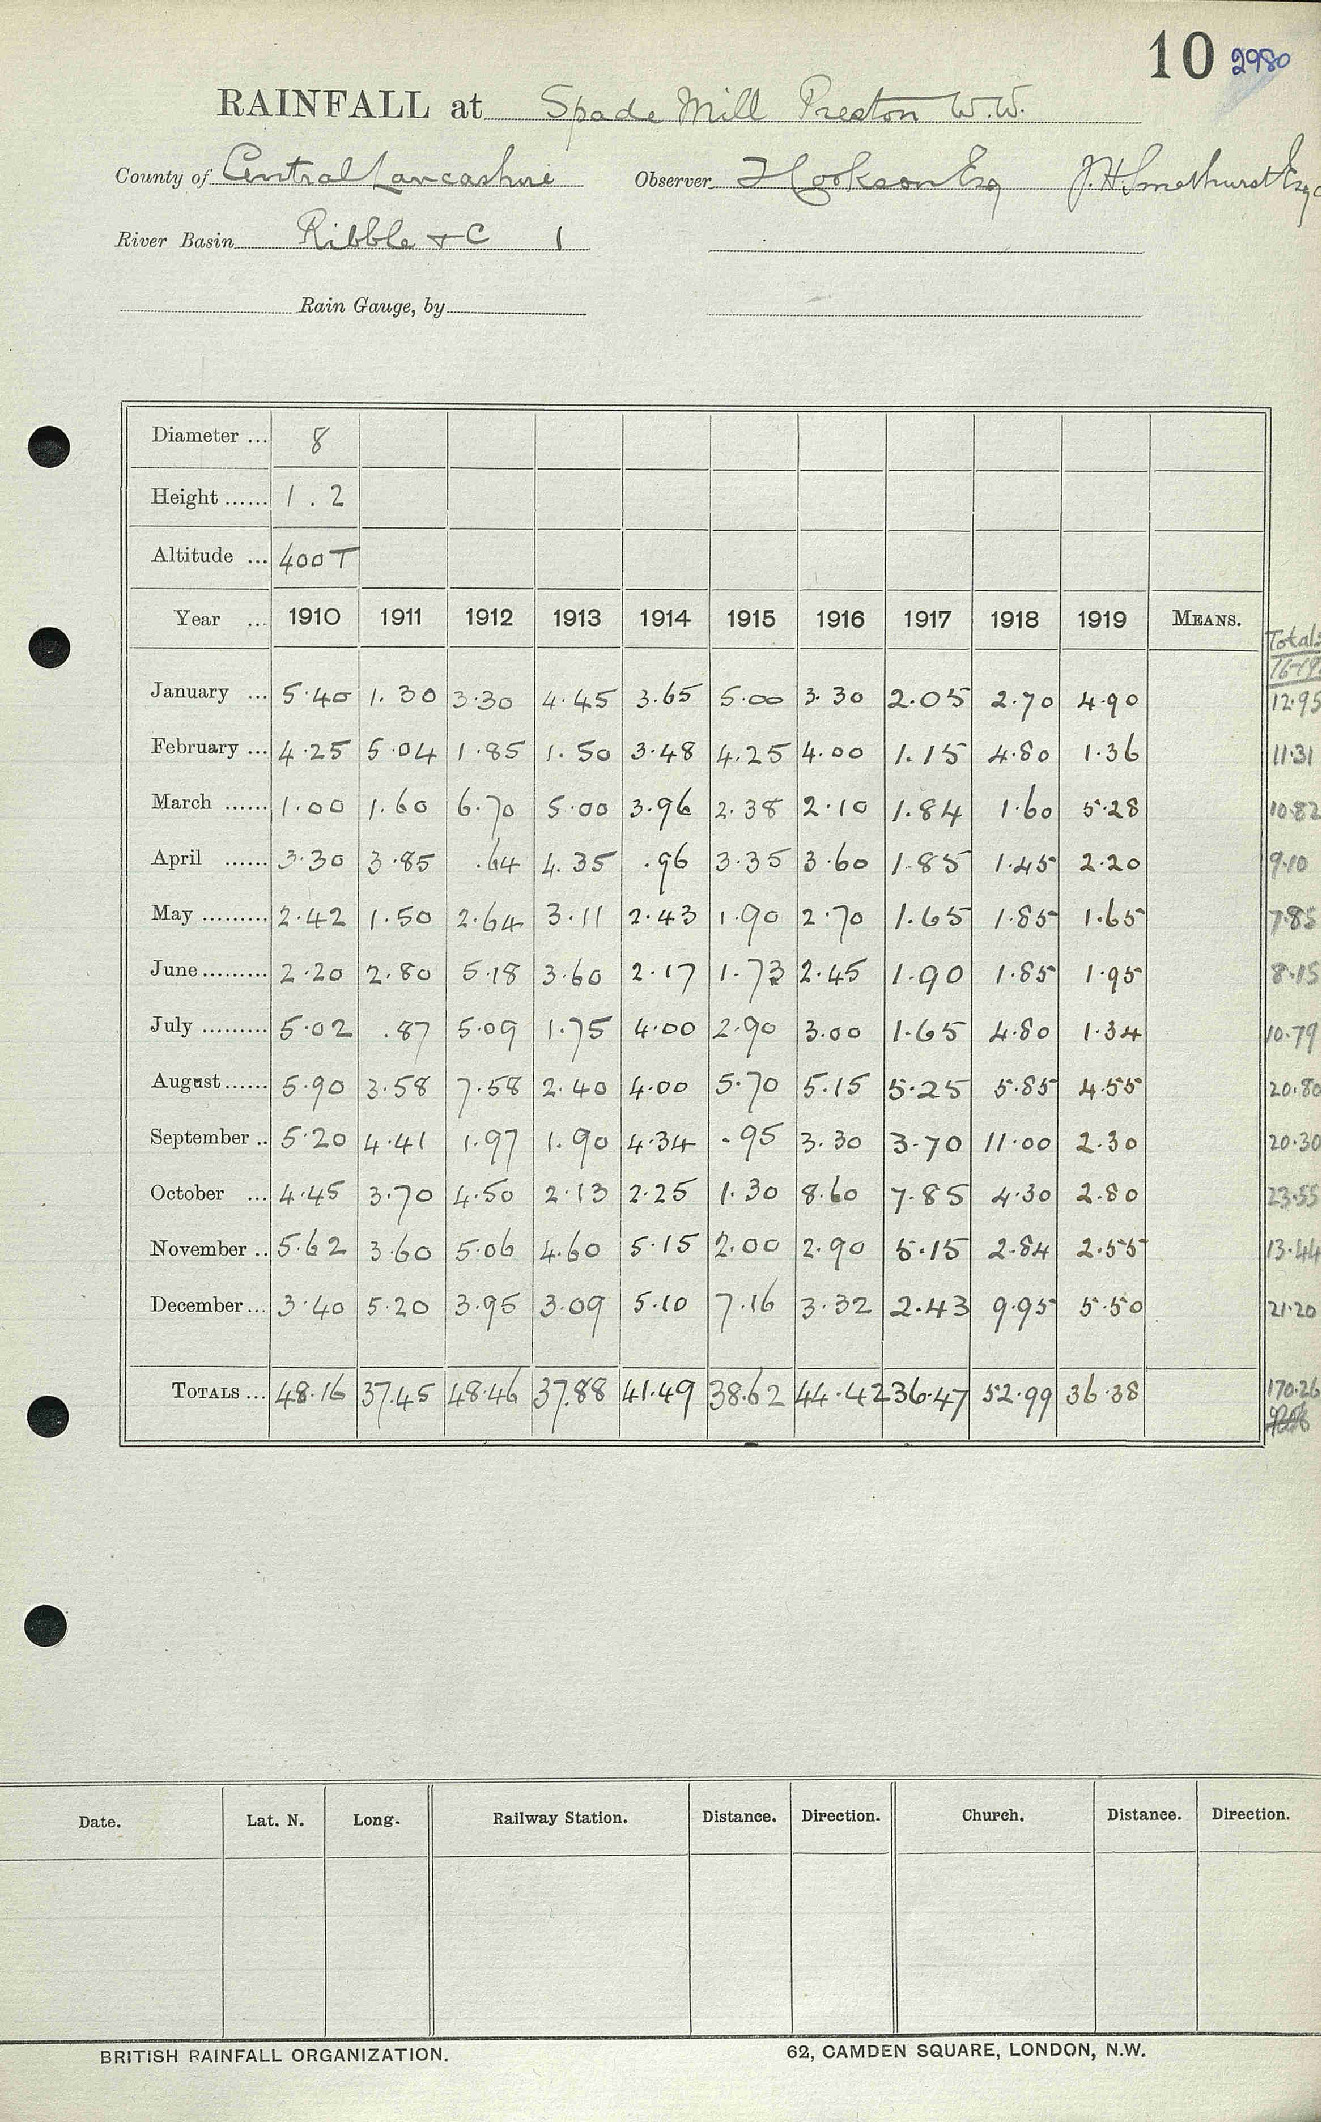 10 2980
RAINFALL at Spade Mill Preston W.W.
County of Central Lancashire Observer Hookson Esq J.H. Smethurst Esq
River Basin Ribble + C 1
Rain Gauge, by
Diameter ... 8
Height ...... 1.2
Altitude ... 400 T
Year ... 1910 1911 1912 1913 1914 1915 1916 1917 1918 1919 MEANS. Totals
16-19
January ... 5.40 1.30 3.30 4.45 3.65 5.00 3.30 2.05 2.70 4.90 12.95
February ... 4.25 5.04 1.85 1.50 3.48 4.25 4.00 1.15 4.80 1.36 11.31
March ...... 1.00 1.60 6.70 5.00 3.96 2.38 2.10 1.84 1.60 5.28 10.82
April ...... 3.30 3.85 .64 4.35 .96 3.35 3.60 1.85 1.45 2.20 9.10
May ......... 2.42 1.50 2.64 3.11 2.43 1.90 2.70 1.65 1.85 1.65 7.85
June ......... 2.20 2.80 5.18 3.60 2.17 1.73 2.45 1.90 1.85 1.95 8.15
July ......... 5.02 .87 5.09 1.75 4.00 2.90 3.00 1.65 4.80 1.34 10.79
August ...... 5.90 3.58 7.58 2.40 4.00 5.70 5.15 5.25 5.85 4.55 20.80
September .. 5.20 4.41 1.97 1.90 4.34 .95 3.30 3.70 11.00 2.30 20.30
October ... 4.45 3.70 4.50 2.13 2.25 1.30 8.60 7.85 4.30 2.80 23.55
November .. 5.62 3.60 5.06 4.60 5.15 2.00 2.90 5.15 2.84 2.55 13.44
December ... 3.40 5.20 3.95 3.09 5.10 7.16 3.32 2.43 9.95 5.50 21.20
TOTALS ... 48.16 37.45 48.46 37.88 41.49 38.62 44.42 36.47 52.99 36.38 170.26
Date. Lat. N. Long. Railway Station. Distance. Direction. Church. Distance. Direction.
BRITISH RAINFALL ORGANIZATION. 62, CAMDEN SQUARE, LONDON, N.W.